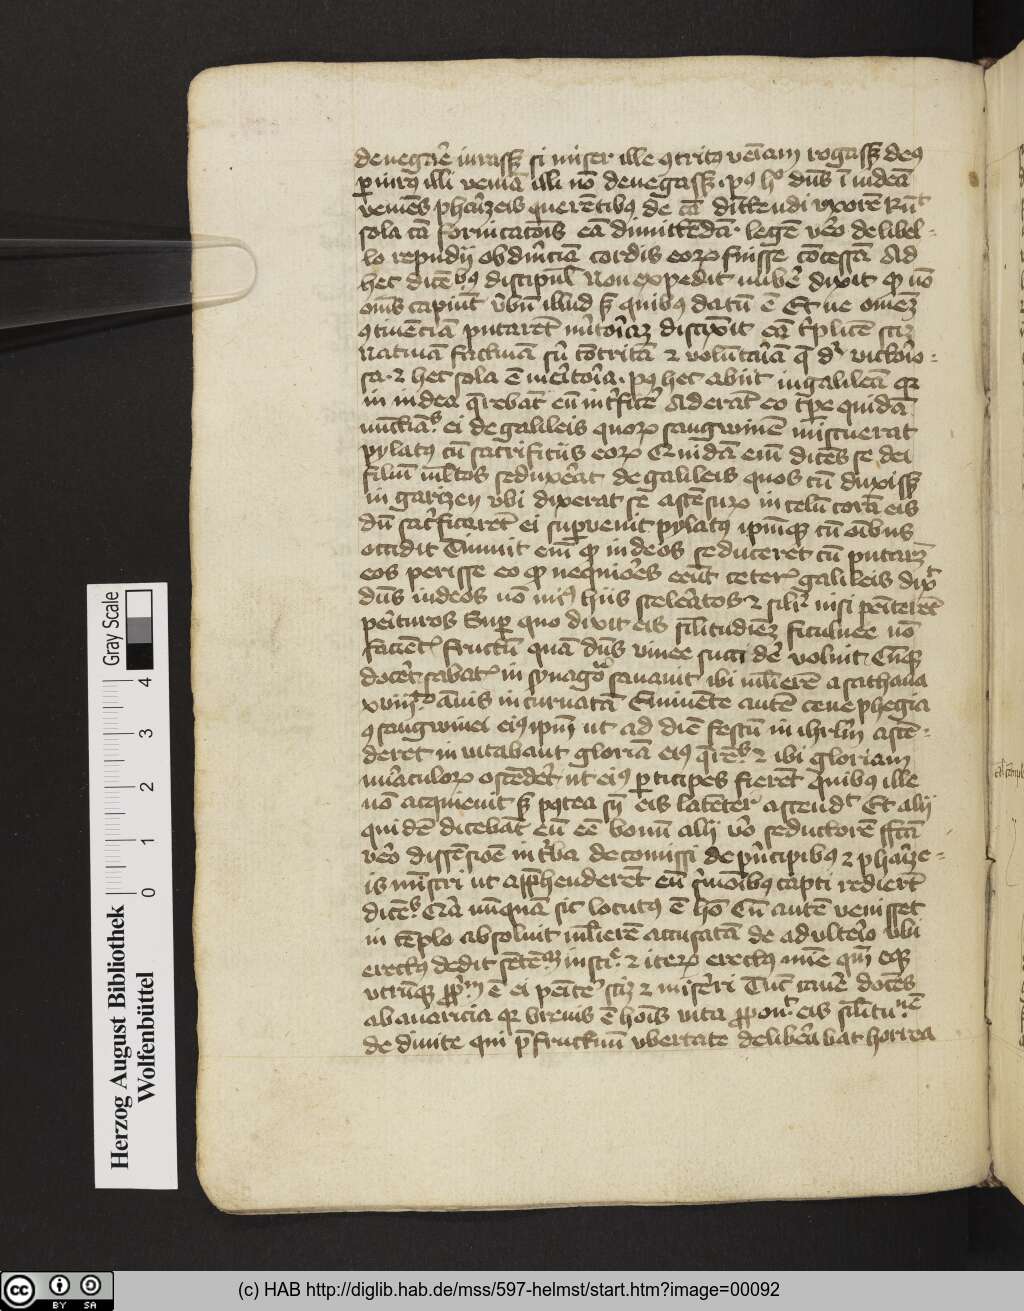 denegare iurasset si miser ille contritus veniam rogasset deus
periurus illi veniam illi non denegasset. post hoc dominus in iudeam
veniens phariseis querentibus de causa dimittendi uxorem
sola causa fornicationis eam dimittendam. legem vero de libel-
lo repudii ob duriciam cordis eorum fuisse concessam Ad
hec dicentibus discipulis Non expedit nubere dixit quod non
omnes capiunt verbum illud sed quibus datum est Et ne omnem
continenciam putarent meritoriam distinxit eam triplicem scilicet
et voluntariam que dicitur
sa. et hec sola est meritoria. post hec abiit in galileam quia
in iudea querebant eum interficere Aderant eo tempore quidam
nunctiantes ei de galileis quorum sangwinem miscuerat
pylatus cum sacrificiis eorum Quidam enim dicens se dei
filium multos seduxerat de galileis quos cum duxisset
in garizen ubi dixerat se ascensurum in celum coram eis
dum sacrificarent ei supervenit pylatus ipsumque cum omnibus
occidit Timuit enim quod iudeos seduceret cum putarent
eos perisse eo quod nequiores essent ceteris galileis dixit
dominus iudeos non minus hiis sceleratos et similiter nisi peniterent
perituros Super quo dixit eis similitudinem ficulnee non
facientis fructum quam dominus vinee succidere voluit Cumque
doceret sabatis in synagoga sanavit ibi mulierem a sathana
xviii annis incurvatam Eminente autem cenophegia
consangwinei eius ipsum ut ad diem festum in iherusalem ascen-
deret invitabant gloriam eius querentes et ibi gloriam
miraculorum ostenderet ut eius participes fierent Quibus ille
non acquievit sed postea sine eis latenter ascendit Et alii
quidem dicebant eum esse bonum alii vero seductorem facta
vero dissensione in turba de comissi de principibus et pharize-
is ministri ut apprehenderent eum sermonibus capti redierunt
dicentes Quia nunquam sic locutus est homo Cum autem venisset
in templo absolvit mulierem accusatam de adulterio ubi
erectus dedit sentenciam iusticie et iterum erectus
utrumque proprium est ei penitenti scilicet et misereri Tunc cavere docens
ab avaricia quia brevis est hominis vita proponit eis similitudinem
de divite qui pre fructuum ubertate deliberabat horrea
Herzog August Bibliothek
Wolfenbüttel
Gray Scale
0 1 2 3 4
CC BY SA
(c) HAB http://diglib.hab.de/mss/597-helmst/start.htm?image=00092